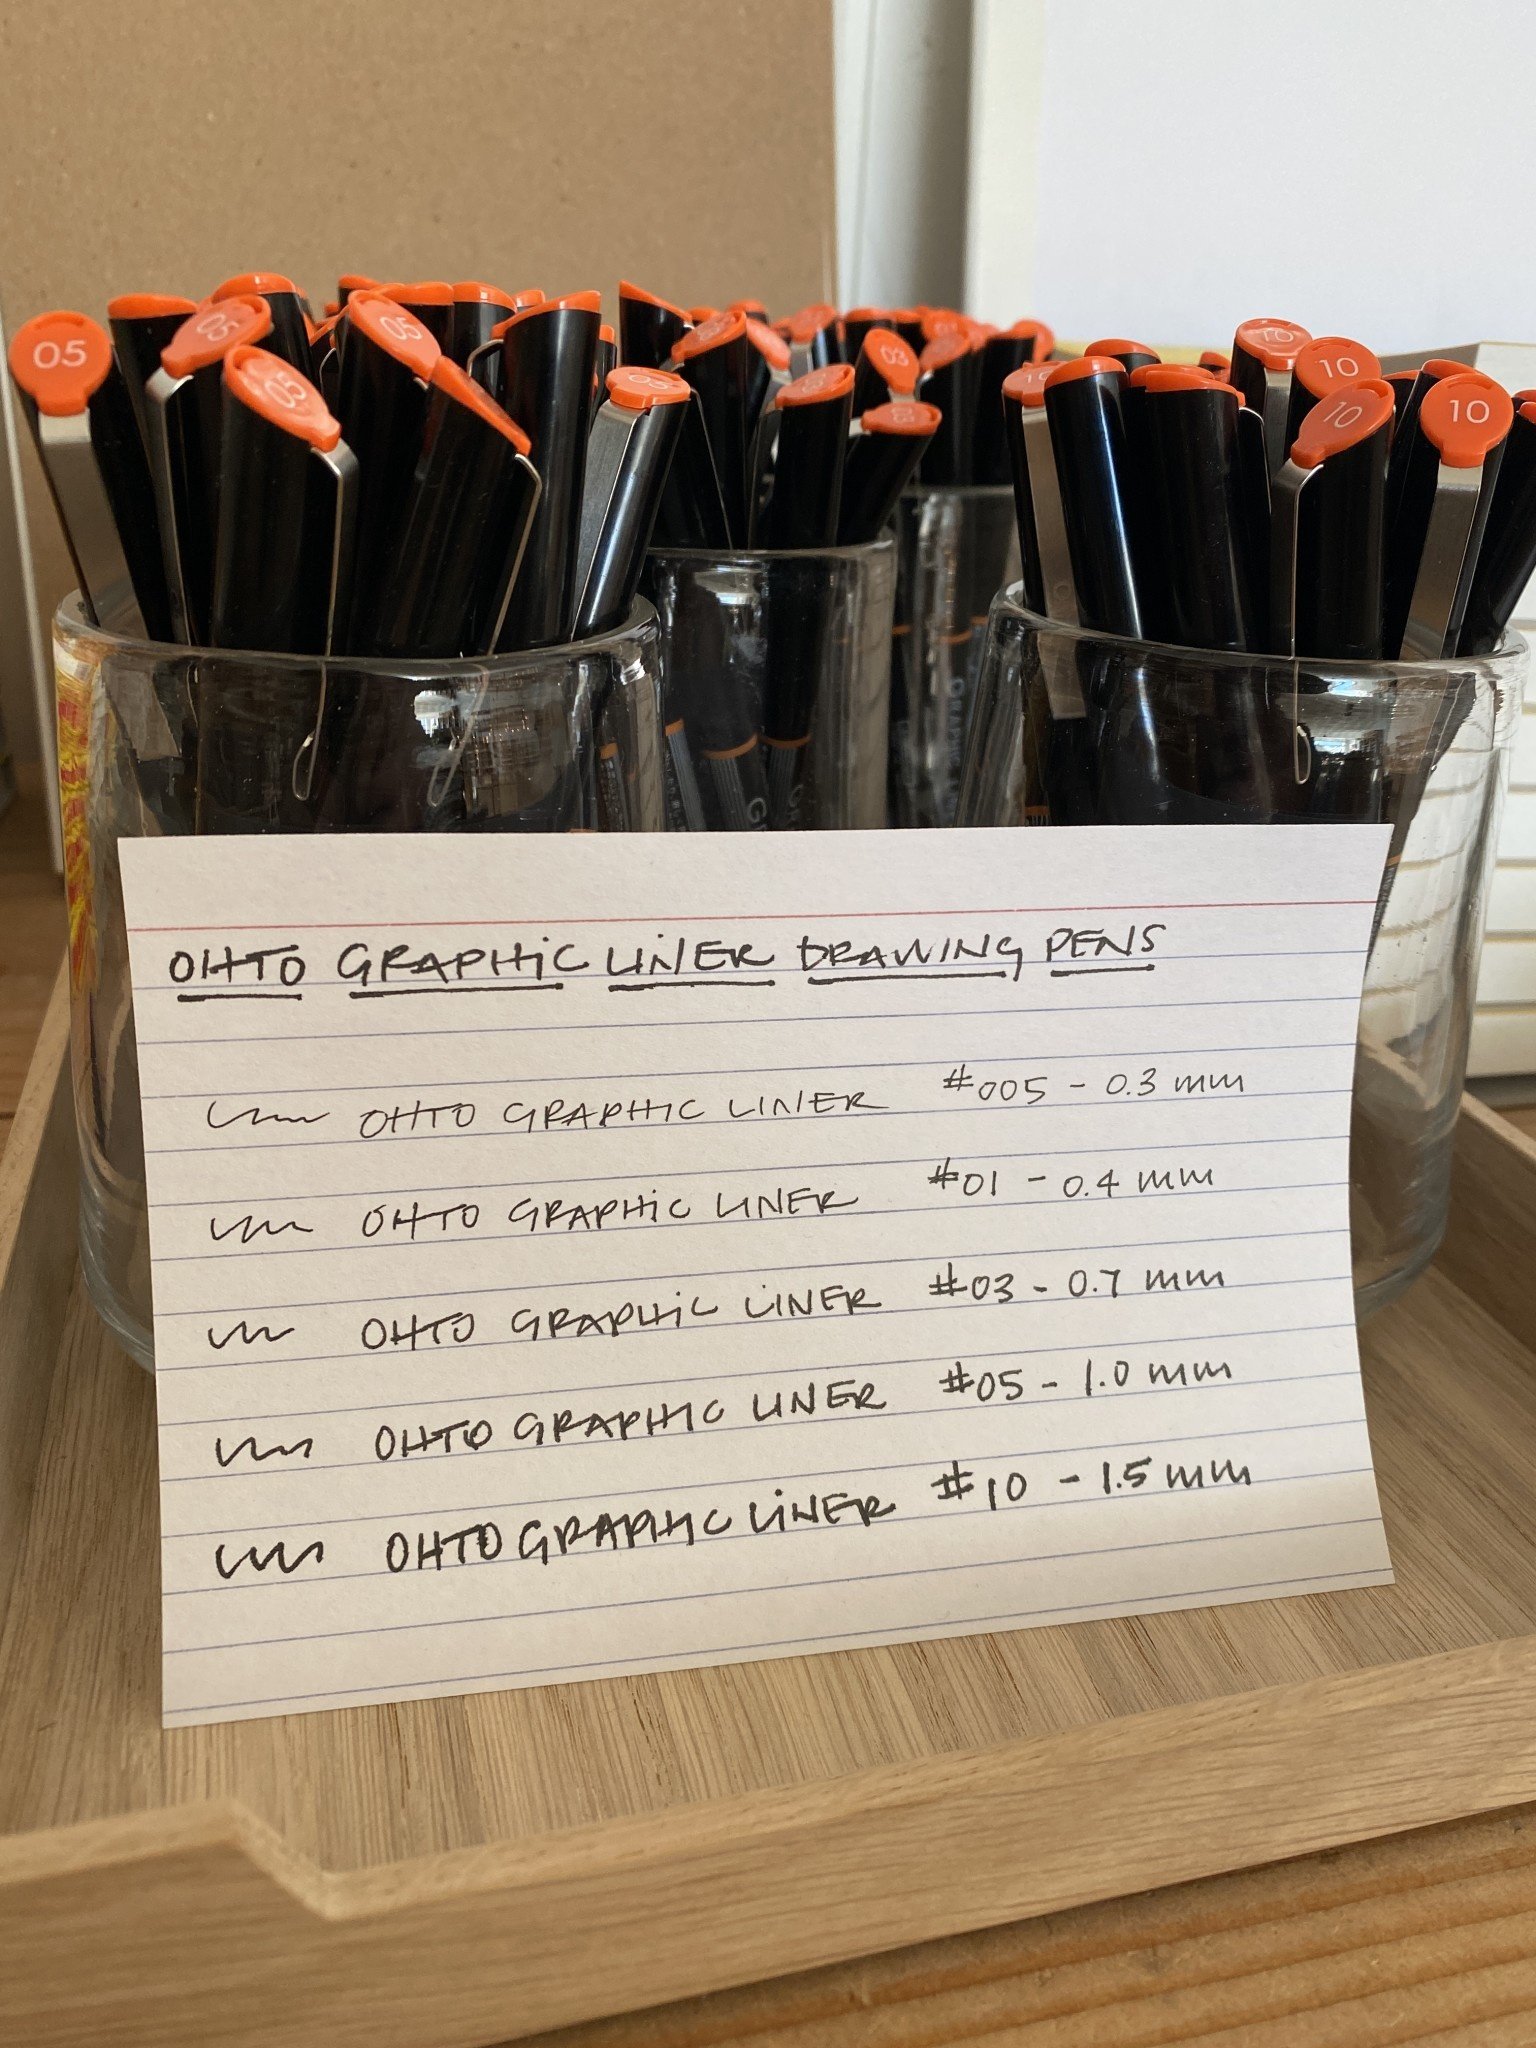 05
05
05
05
03
10
10
10
10
OHTO GRAPHIC LINER DRAWING PENS
OHTO GRAPHIC LINER #005 - 0.3 mm
OHTO GRAPHIC LINER #01 - 0.4 mm
OHTO GRAPHIC LINER #03 - 0.7 mm
OHTO GRAPHIC LINER #05 - 1.0 mm
OHTO GRAPHIC LINER #10 - 1.5 mm